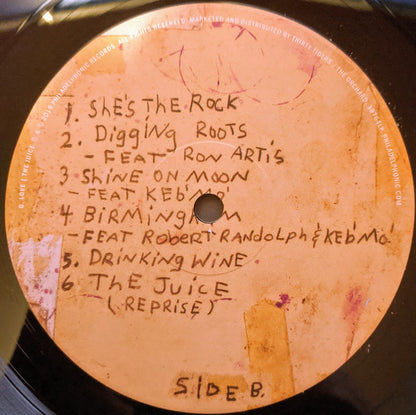 1. SHE'S THE ROCK
2. Digging ROOTS
- FEAT RON ARTiS
3 SHiNE ON MOON
- FEAT KEB'MO'
4 BiRMiNgHAM
- FEAT RObERT RANDOLPH & KEB'MO'
5. DRiNKiNg WiNE
6 THE JUiCE
( REPRiSE )
SiDE B.
PHILADELPHONIC RECORDS
ALL RIGHTS RESERVED. MARKETED AND DISTRIBUTED BY THIRTY TIGERS / THE ORCHARD.
PHILADELPHONIC.COM
G. LOVE | THE JUICE